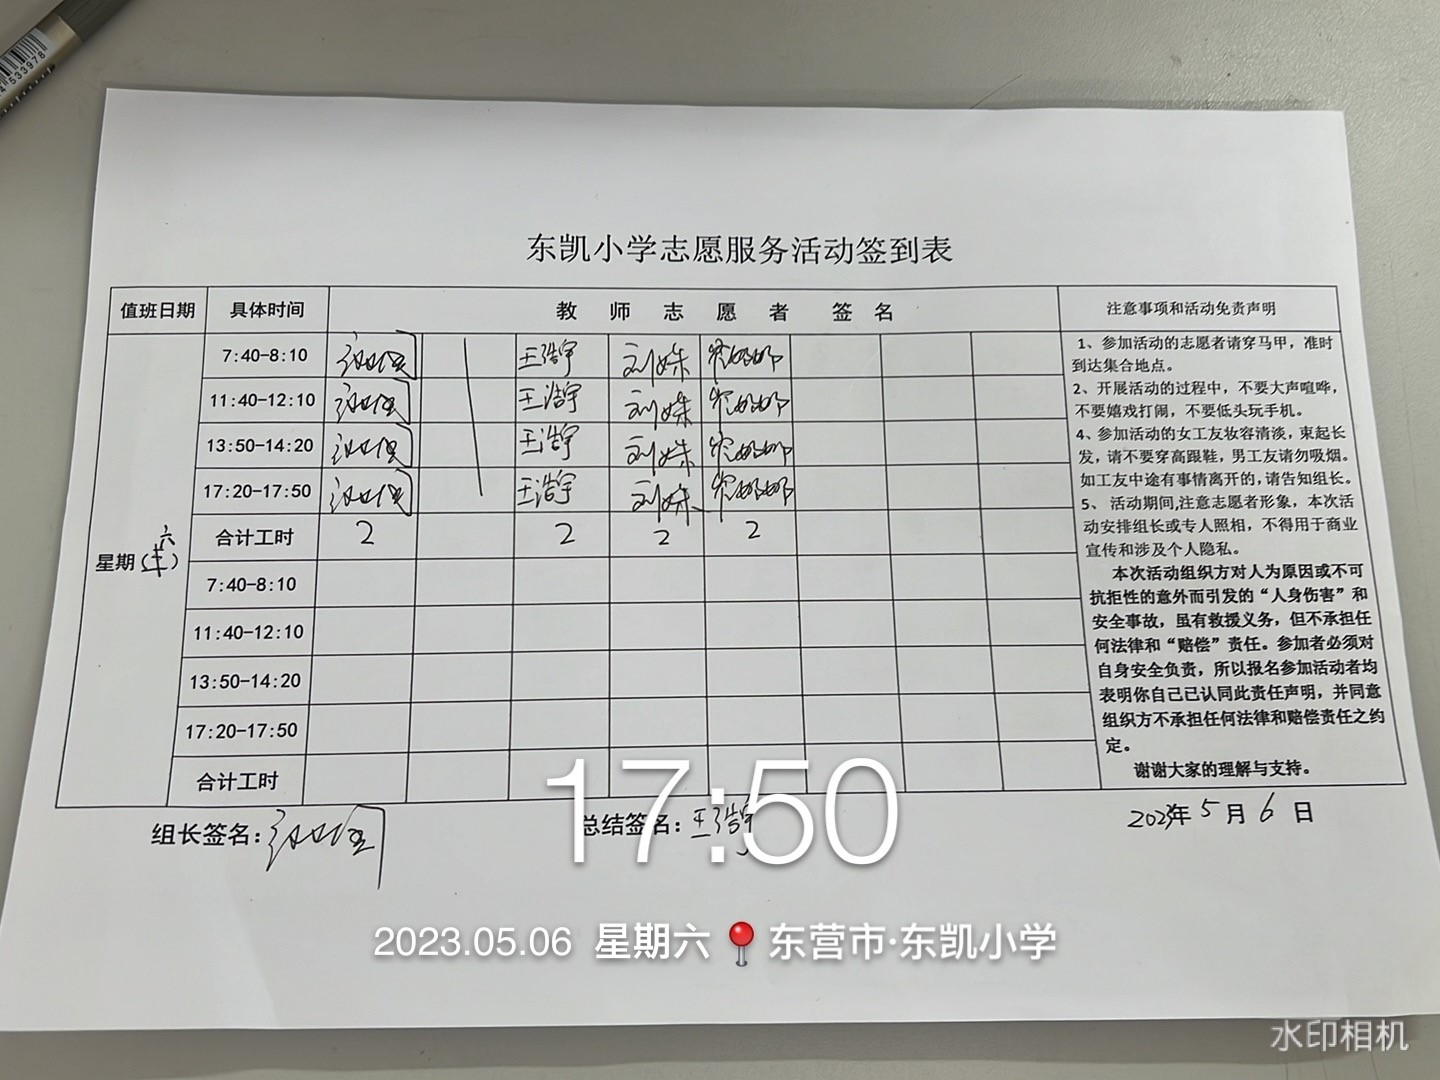 4533978
东凯小学志愿服务活动签到表
值班日期 具体时间 教师志愿者 签名 注意事项和活动免责声明
7:40-8:10 王浩宇 刘姝
11:40-12:10 王浩宇 刘姝
13:50-14:20 王浩宇 刘姝
17:20-17:50 王浩宇 刘姝
合计工时 2 2 2 2
星期( 六 )
7:40-8:10
11:40-12:10
13:50-14:20
17:20-17:50
合计工时
1、参加活动的志愿者请穿马甲，准时
到达集合地点。
2、开展活动的过程中，不要大声喧哗，
不要嬉戏打闹，不要低头玩手机。
4、参加活动的女工友妆容清淡，束起长
发，请不要穿高跟鞋，男工友请勿吸烟。
如工友中途有事情离开的，请告知组长。
5、 活动期间,注意志愿者形象，本次活
动安排组长或专人照相，不得用于商业
宣传和涉及个人隐私。
本次活动组织方对人为原因或不可
抗拒性的意外而引发的“人身伤害”和
安全事故，虽有救援义务，但不承担任
何法律和“赔偿”责任。参加者必须对
自身安全负责，所以报名参加活动者均
表明你自己已认同此责任声明，并同意
组织方不承担任何法律和赔偿责任之约
定。
谢谢大家的理解与支持。
组长签名： 总结签名：王浩宇 2023年 5 月 6 日
17:50
2023.05.06 星期六 东营市·东凯小学
水印相机